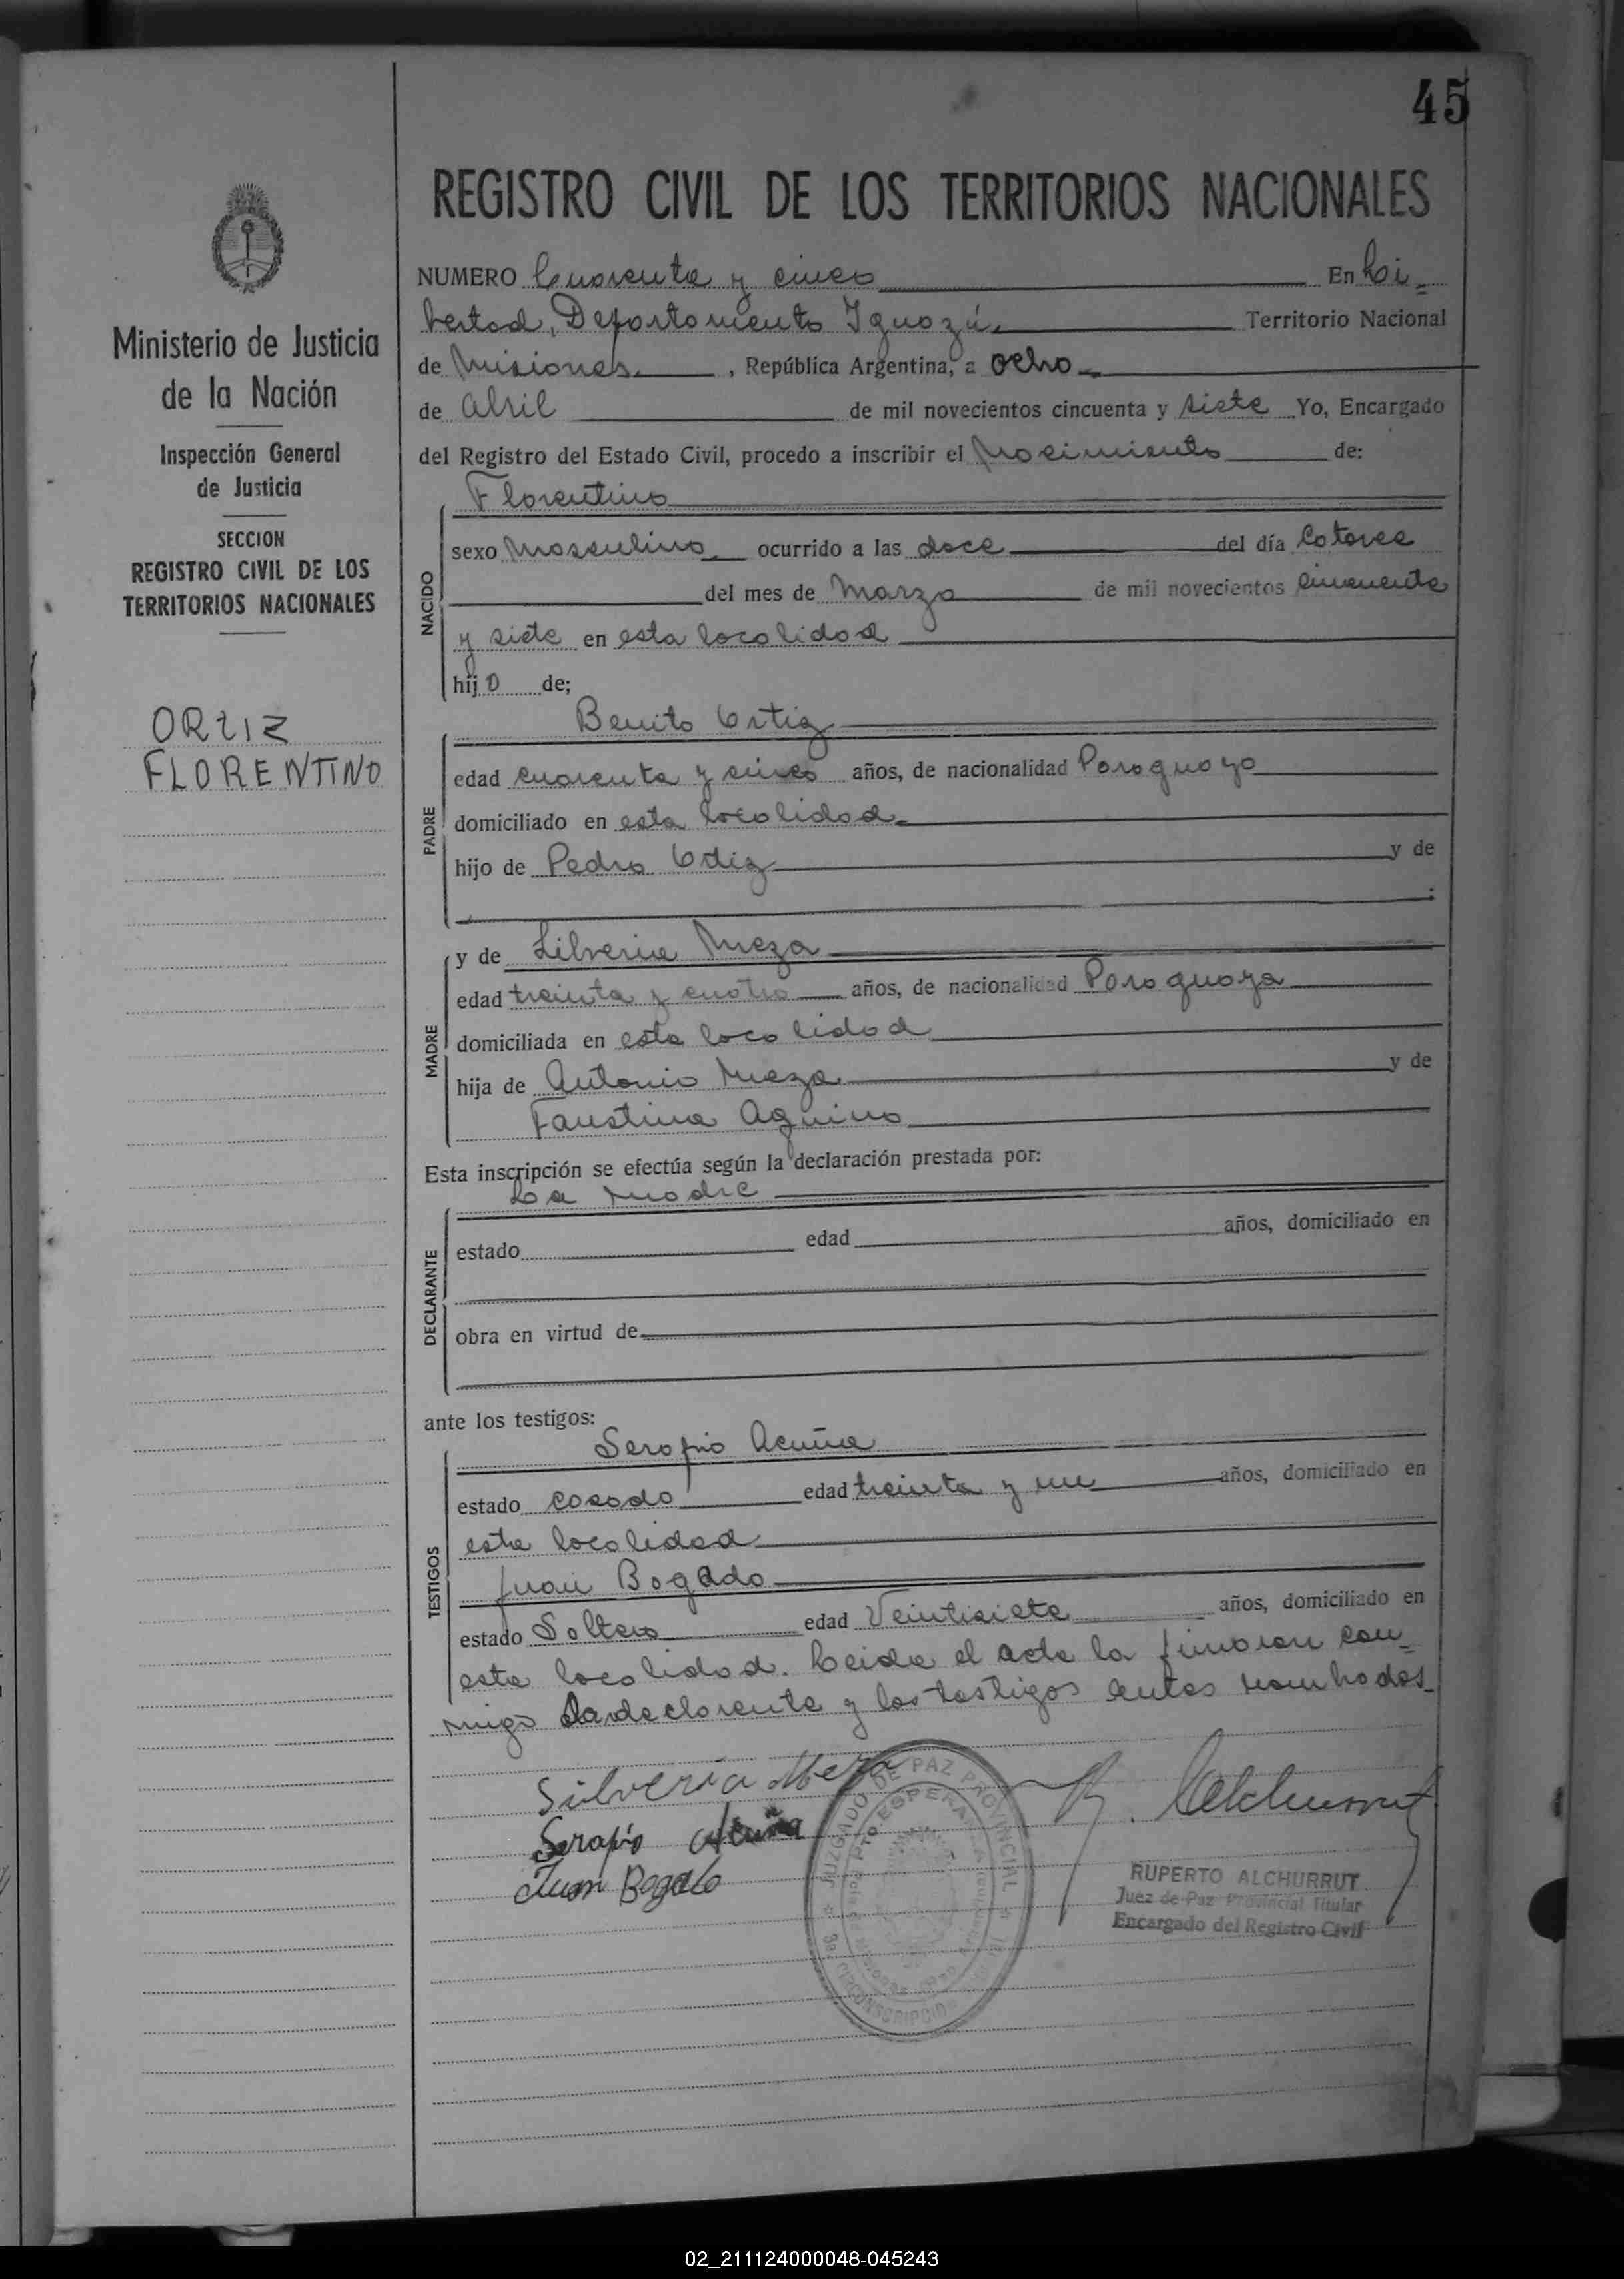 45
REGISTRO CIVIL DE LOS TERRITORIOS NACIONALES
Ministerio de Justicia
de la Nación
Inspección General
de Justicia
SECCION
REGISTRO CIVIL DE LOS
TERRITORIOS NACIONALES
ORTIZ
FLORENTINO
NUMERO Cuarenta y cinco En Li-
bertad, Departamento Iguazú. Territorio Nacional
de Misiones. , República Argentina, a ocho
de abril de mil novecientos cincuenta y siete Yo, Encargado
del Registro del Estado Civil, procedo a inscribir el Nacimiento de:
Florentino
NACIDO
sexo Masculino ocurrido a las doce del día Catorce
del mes de Marzo de mil novecientos cincuenta
y siete en esta localidad
hijo de;
Benito Ortiz
PADRE
edad cuarenta y cinco años, de nacionalidad Paraguayo
domiciliado en esta localidad
hijo de Pedro Ortiz y de
;
MADRE
y de Silveria Meza
edad treinta y cuatro años, de nacionalidad Paraguaya
domiciliada en esta localidad
hija de Antonio Meza y de
Faustina Aquino
Esta inscripción se efectúa según la declaración prestada por:
La Madre
DECLARANTE
estado edad años, domiciliado en
obra en virtud de
ante los testigos:
TESTIGOS
Serapio Acuña
estado casado edad treinta y un años, domiciliado en
esta localidad
Juan Bogado
estado Soltero edad Veintisiete años, domiciliado en
esta localidad. Leida el acta la firmaron con-
migo la declarante y los testigos antes nombrados
Silveria Meza
Serapio Acuña
Juan Bogado
R. Alchurrut
JUZGADO DE PAZ PROVINCIAL
PTO ESPERANZA
3a. CIRCUNSCRIPCION
RUPERTO ALCHURRUT
Juez de Paz Provincial Titular
Encargado del Registro Civil
02_211124000048-045243